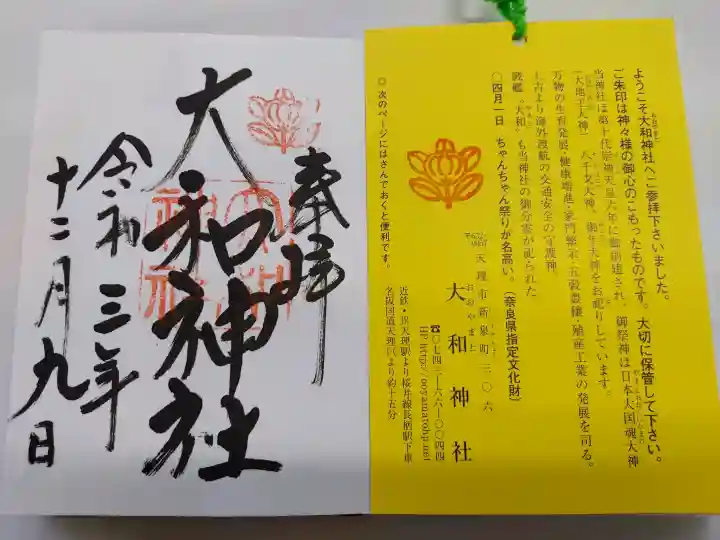 奉拝
大和神社
令和三年
十二月九日
ようこそ大和神社へご参拝下さいました。
ご朱印は神々様の御心のこもったものです。大切に保管して下さい。
当神社は第十代崇神天皇六年に御創建され、御祭神は日本大国魂大神
(大地主大神)、八千戈大神、御年大神をお祀りしています。
万物の生育発展、健康増進・家門繁栄・五穀豊穣・殖産工業の発展を司る。
上古より海外渡航の交通安全の守護神
戦艦“大和”も当神社の御分霊が祀られた
〇四月一日 ちゃんちゃん祭りが名高い。(奈良県指定文化財)
天理市新泉町三〇六
大和神社
おおやまと
☎〇七四三―六六―〇〇四四
HP http://ooyamatohp.net
近鉄・JR天理駅より桜井線長柄駅下車
名阪国道天理ICより約十五分
◎ 次のページにはさんでおくと便利です。